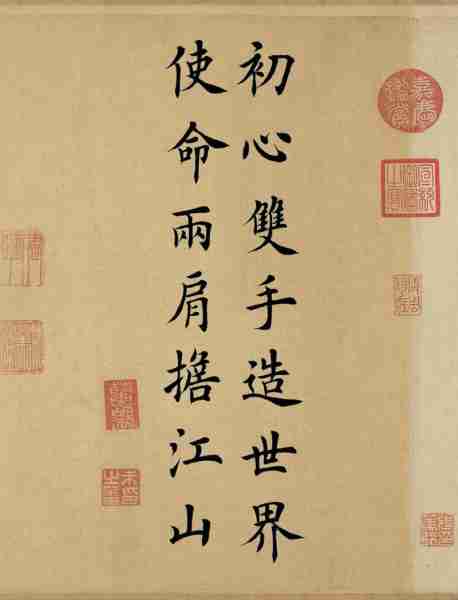 初心雙手造世界
使命兩肩擔江山